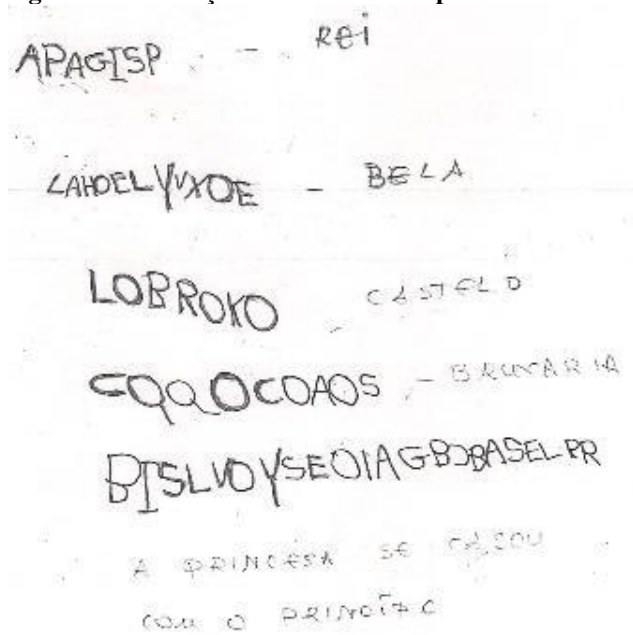 APAGISP - REI
LAHOELYVXOE - BELA
LOBROKO - CASTELO
CQQOCOAOS - BRUXARIA
BISLVOYSEOIAGBJBASEL-PR
A PRINCESA SE CASOU
COM O PRINCÍPE